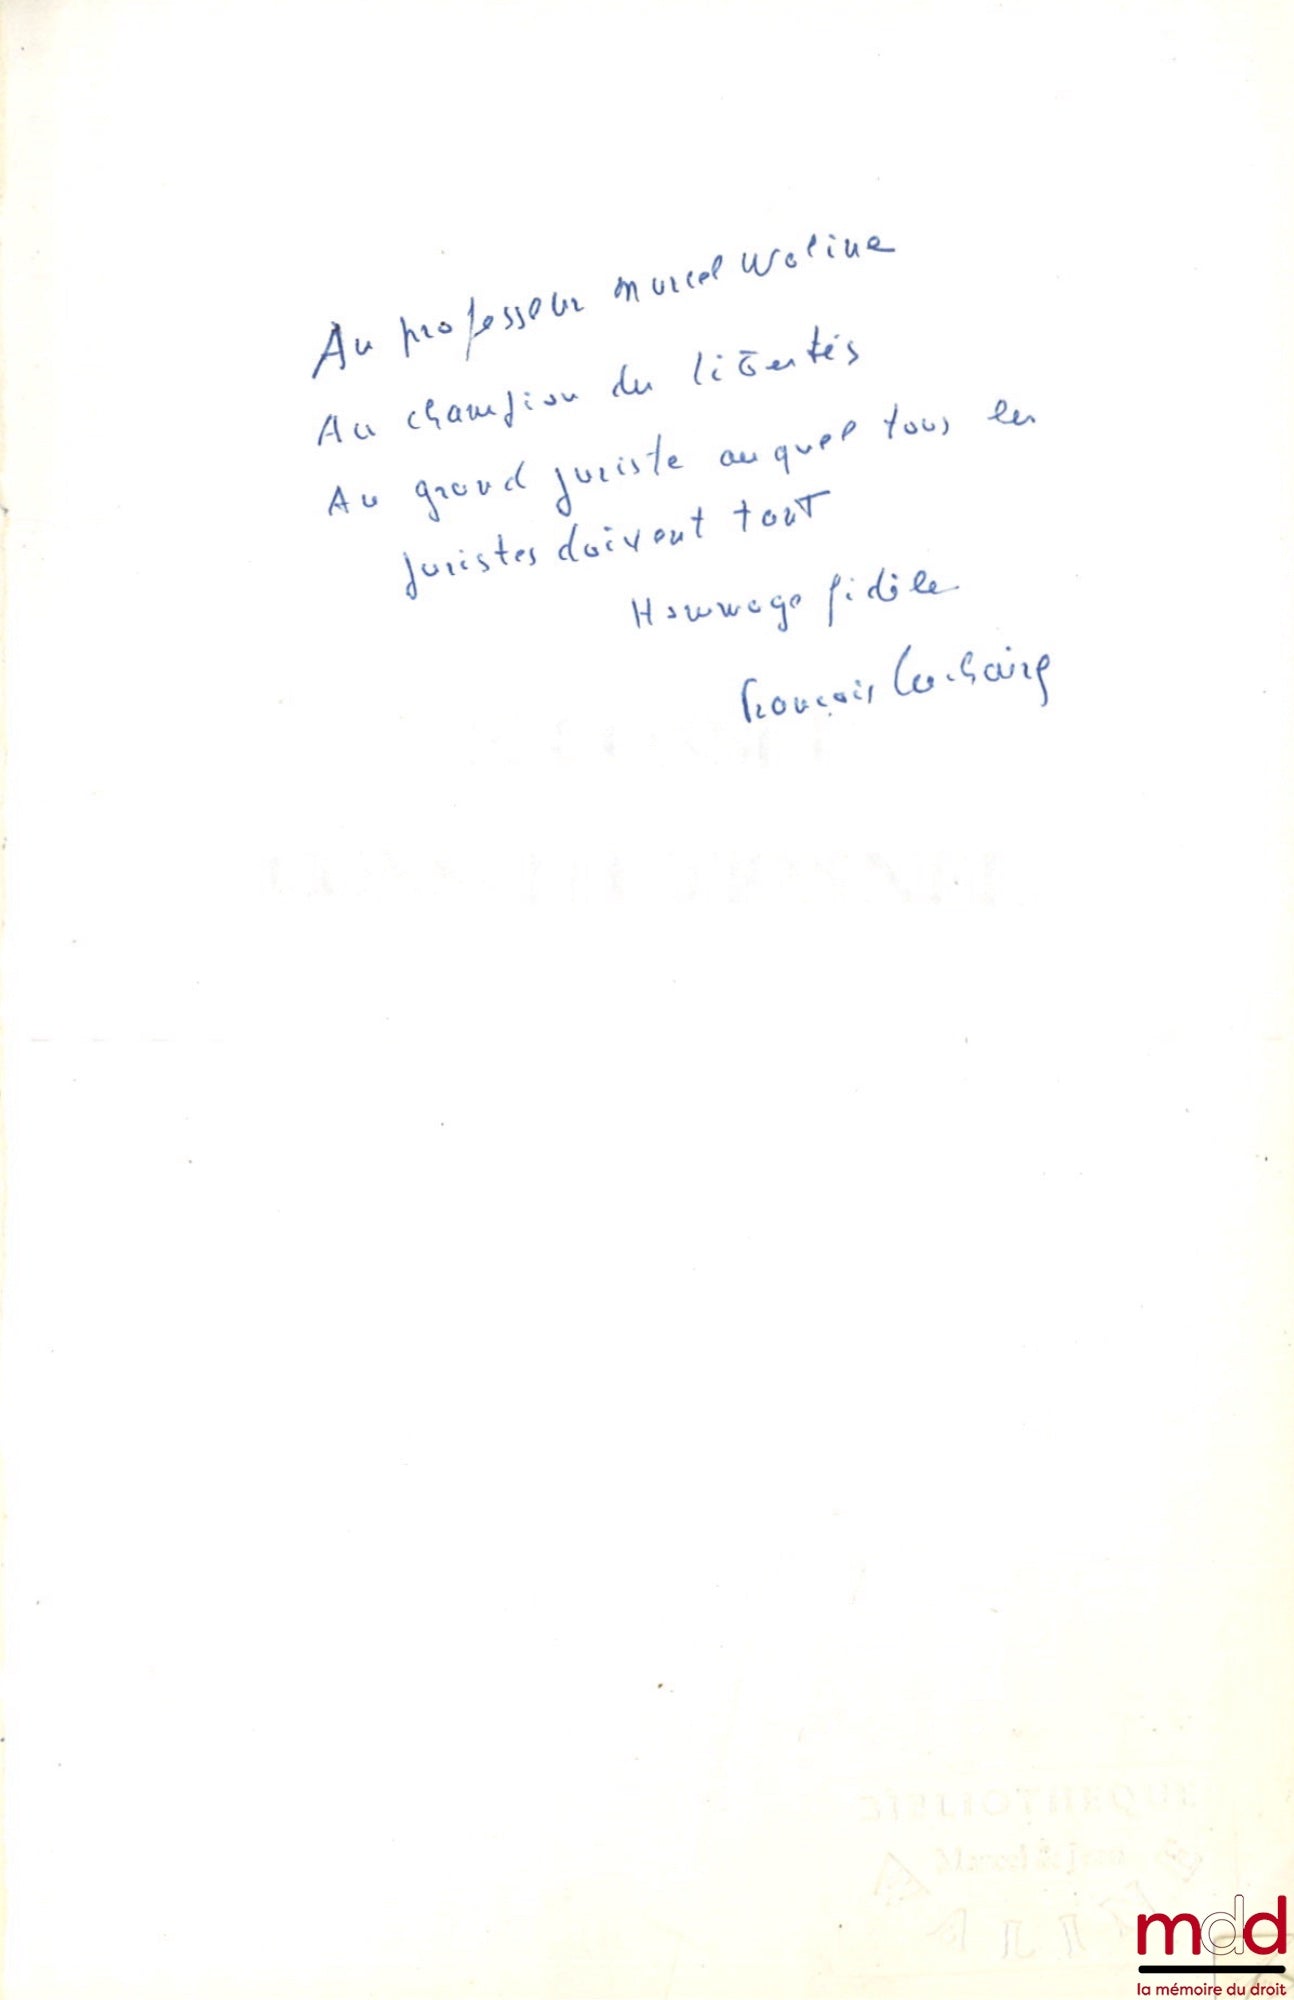 Au professeur Marcel Waline
Au champion des libertés
Au grand juriste auquel tous les
juristes doivent tout
Hommage fidèle
François Luchaire
BIBLIOTHEQUE
Marcel & Jean
mdd
la mémoire du droit